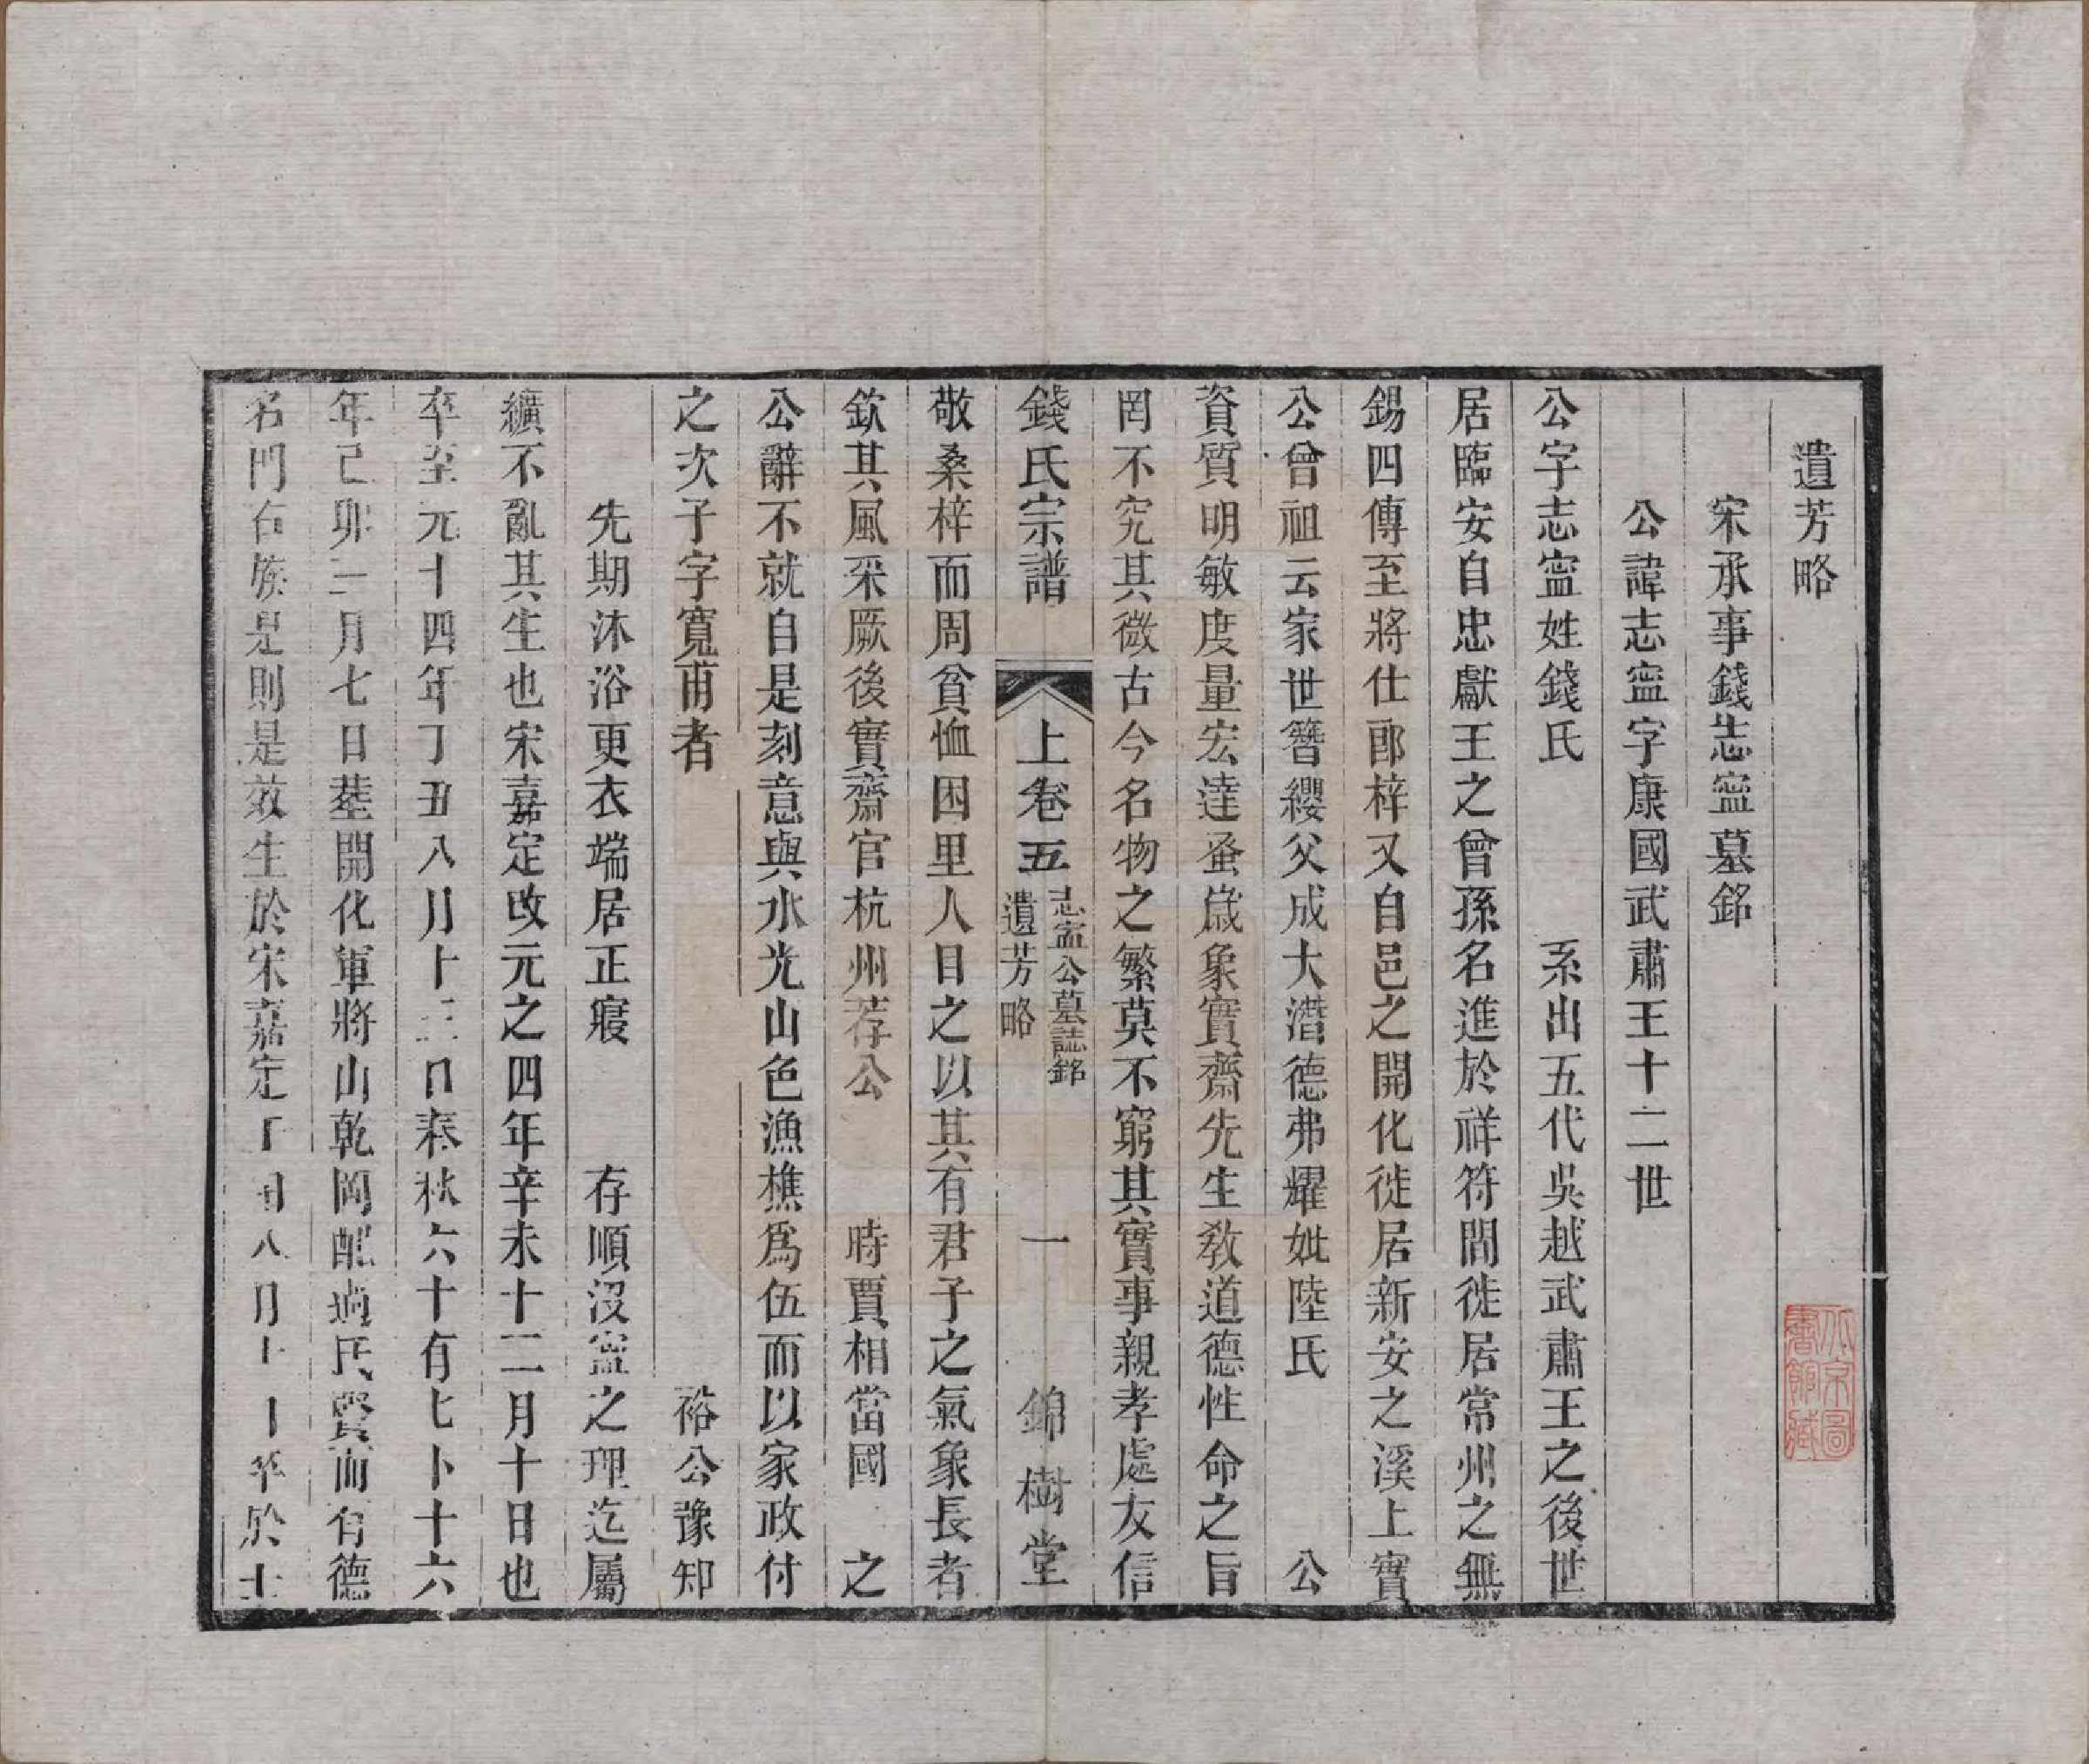 遺芳略
宋承事錢志寍墓銘
公諱志寍字康國武肅王十二世
公字志寍姓錢氏 系出五代吳越武肅王之後世
居臨安自忠獻王之曾孫名進於祥符間徙居常州之無
錫四傳至將仕郎梓又自邑之開化徙居新安之溪上實
公曾祖云家世簪纓父成大潛德弗耀妣陸氏 公
資質明敏度量宏達蚤歲象實齋先生教道德性命之旨
罔不究其微古今名物之繁莫不窮其實事親孝處友信
錢氏宗譜 上卷五 志寍公墓誌銘 遺芳略 一 錦樹堂
敬桑梓而周貧恤困里人目之以其有君子之氣象長者
欽其風采厥後實齋官杭州荐公 時賈相當國 之
公辭不就自是刻意與水光山色漁樵爲伍而以家政付
之次子字寬甫者 裕公豫知
先期沐浴更衣端居正寢 存順沒寍之理迄屬
纊不亂其生也宋嘉定改元之四年辛未十二月十日也
卒至元十四年丁丑八月十三日春秋六十有七卜十六
年己卯二月七日塟開化軍將山乾岡配趙氏賢而有德
名門右族是則是效生於宋嘉定丁丑八月十一卒於士